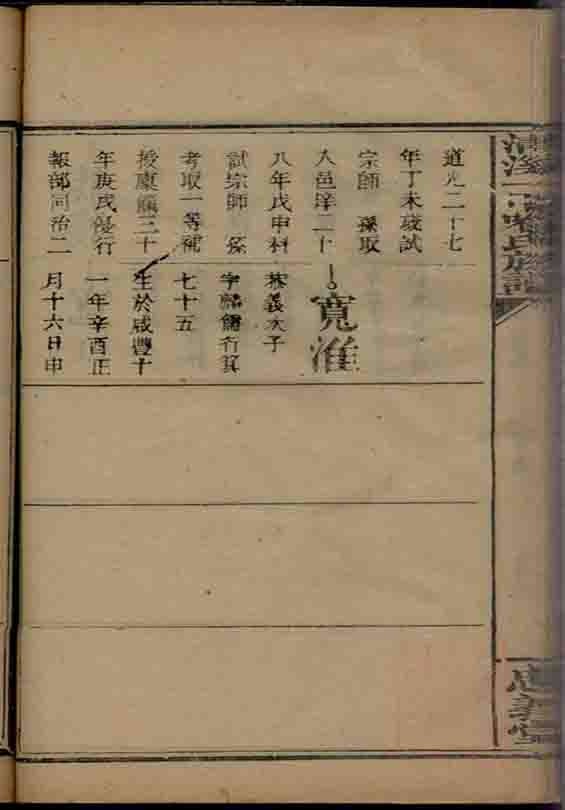 道光二十七
年丁未歲試
宗師 孫取
入邑庠二十
八年戊申科
試宗師
考取一等補
授廩膳三十
年庚戌優行
報部同治二
寬淮
義次子
字麟行箕
七十五
生於咸豐十
一年辛酉正
月十六日申
氏族譜
堂